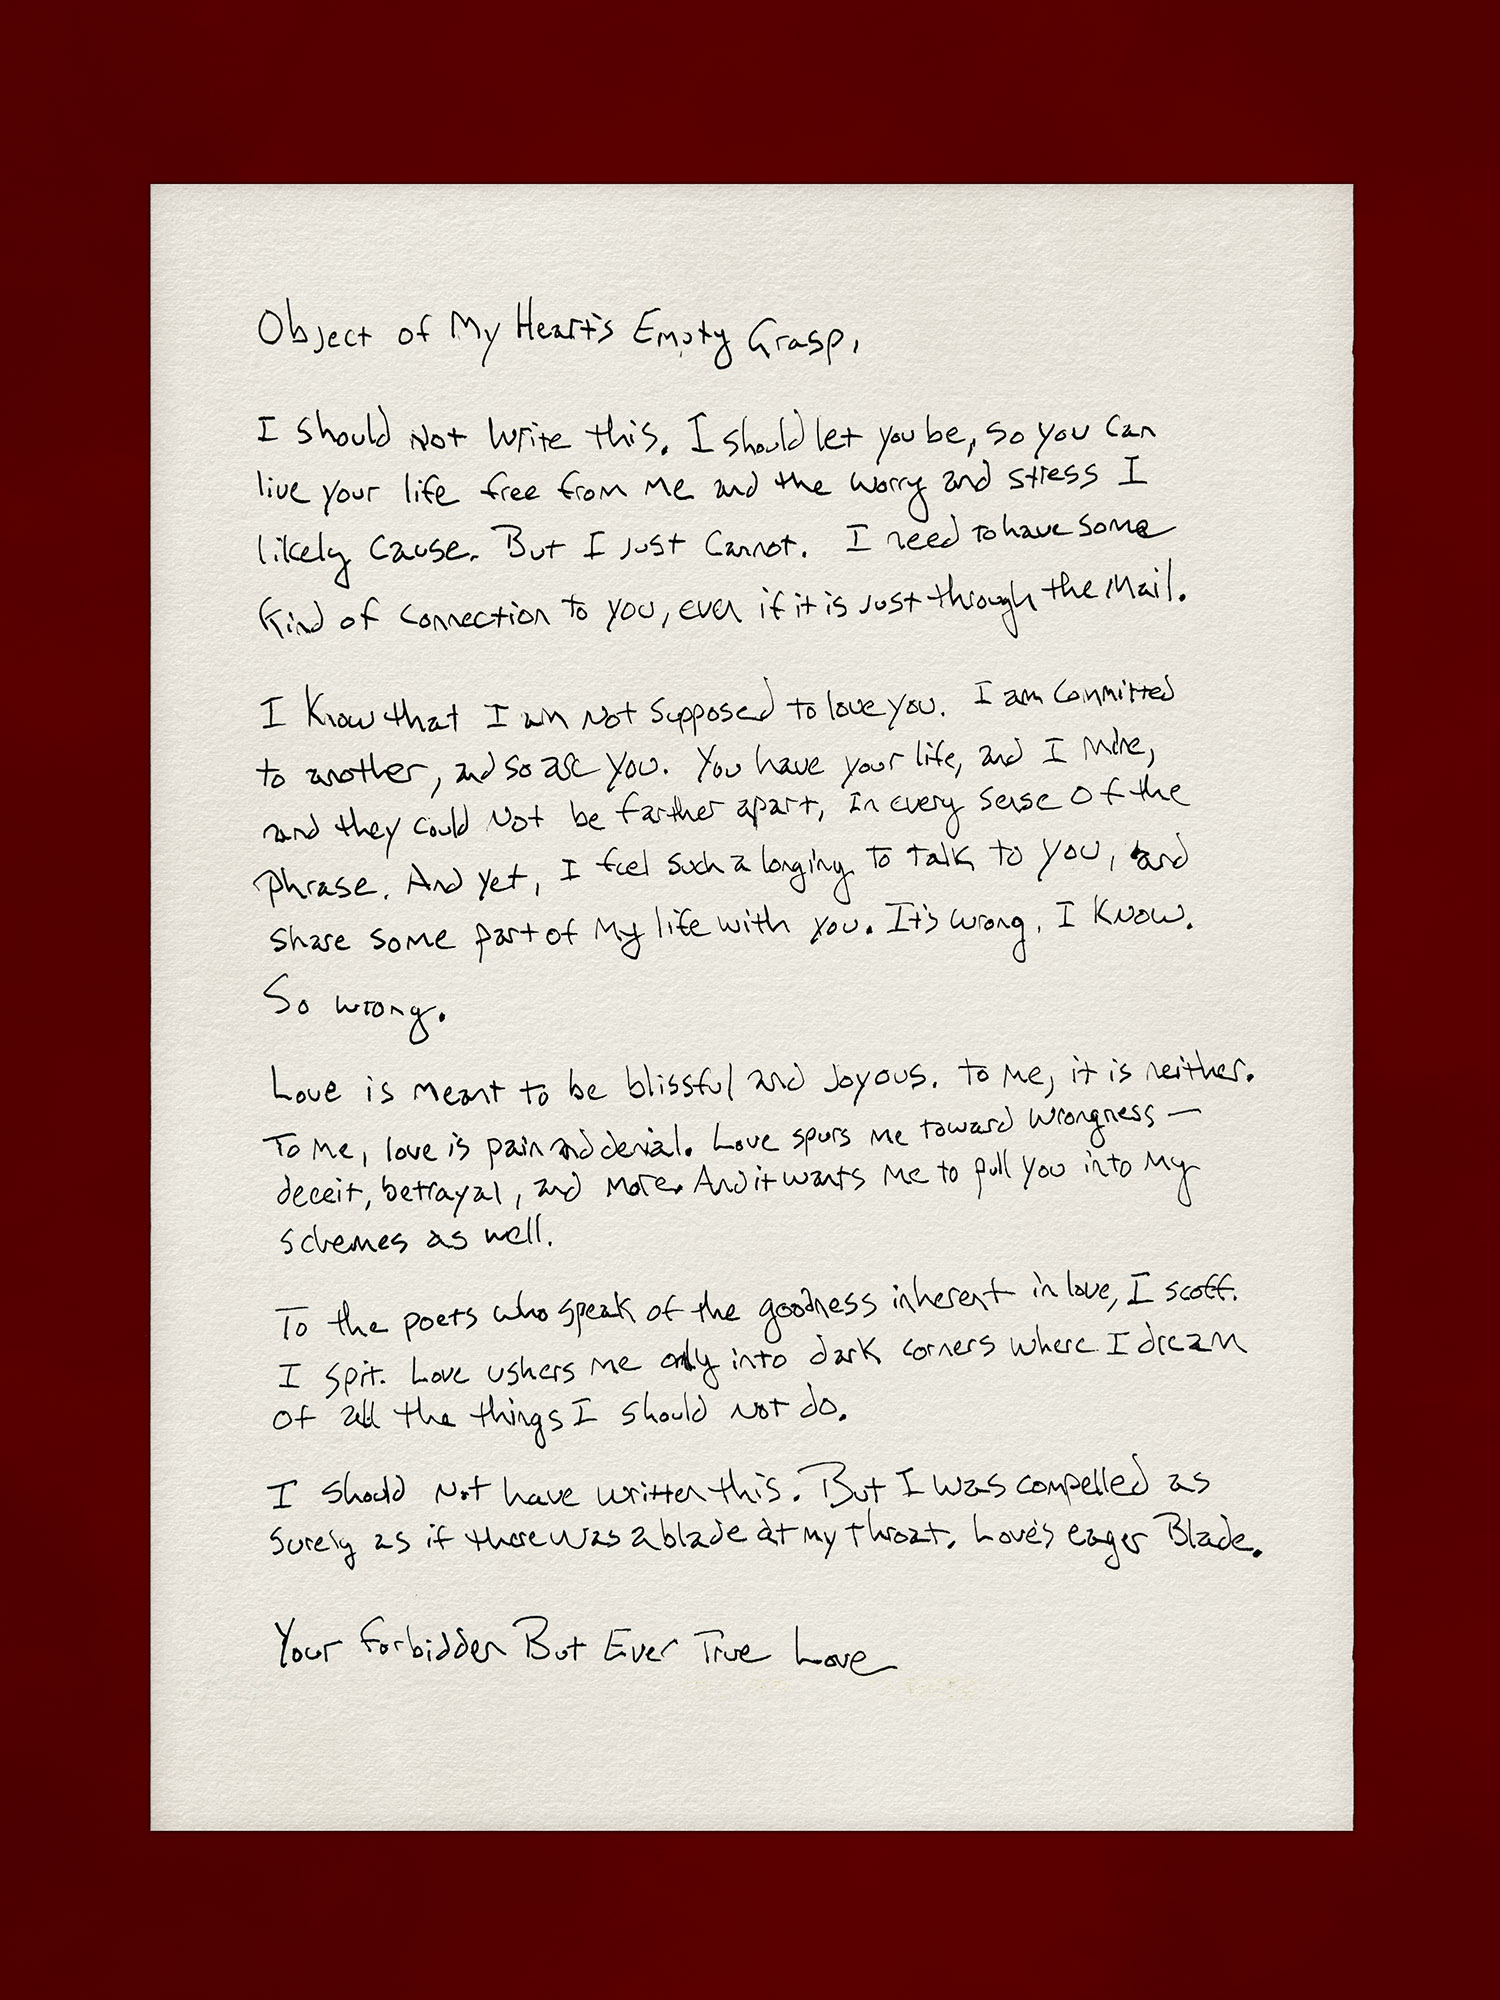 Object of My Heart's Empty Grasp,
I should Not Write this. I should let you be, so you can
live your life free from me and the worry and stress I
likely cause. But I just cannot. I need to have some
kind of connection to you, even if it is just through the Mail.
I know that I am not supposed to love you. I am committed
to another, and so are you. You have your life, and I mine,
and they could not be farther apart, In every sense of the
phrase. And yet, I feel such a longing to talk to you, and
share some part of my life with you. It's wrong, I know.
So wrong.
Love is meant to be blissful and joyous. to me, it is neither.
To me, love is pain and denial. Love spurs me toward wrongness —
deceit, betrayal, and more. And it wants me to pull you into my
schemes as well.
To the poets who speak of the goodness inherent in love, I scoff.
I spit. Love ushers me only into dark corners where I dream
of all the things I should not do.
I should not have written this. But I was compelled as
surely as if there was a blade at my throat. Love's eager Blade.
Your Forbidden But Ever True Love